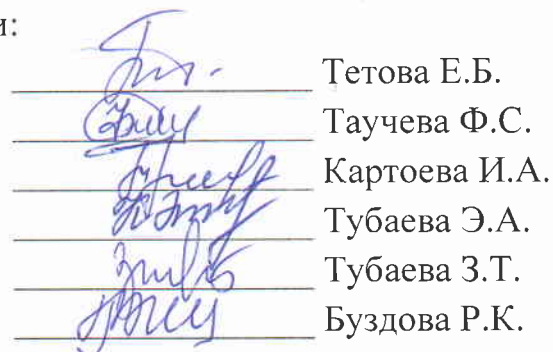 и:
Тетова Е.Б.
Таучева Ф.С.
Картоева И.А.
Тубаева Э.А.
Тубаева З.Т.
Буздова Р.К.